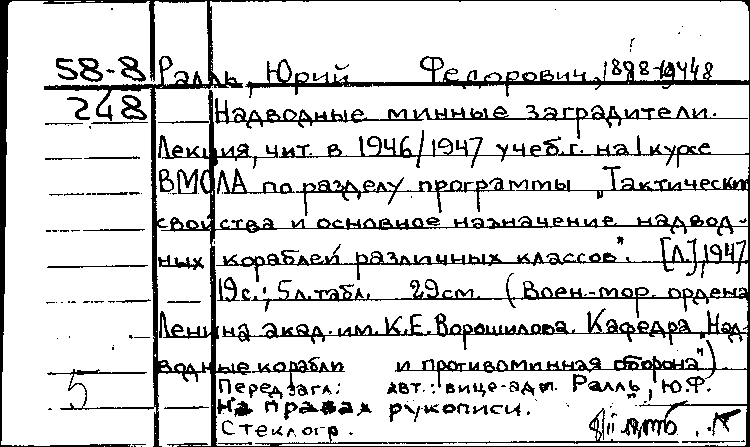 58-8 Ралль, Юрий Федорович, 1898-1948
248 Надводные минные заградители.
Лекция, чит. в 1946/1947 учеб.г. на I курсе
ВМОЛА по разделу программы „Тактические
свойства и основное назначение надвод-
ных кораблей различных классов". [Л.], 1947.
19с.; 5 л. табл. 29см. (Воен.-мор. ордена
Ленина акад. им. К.Е. Ворошилова. Кафедра „Над-
водные корабли и противоминная оборона")
Перед загл.: авт.: вице-адм. Ралль, Ю.Ф.
5 На правах рукописи.
Стеклогр.